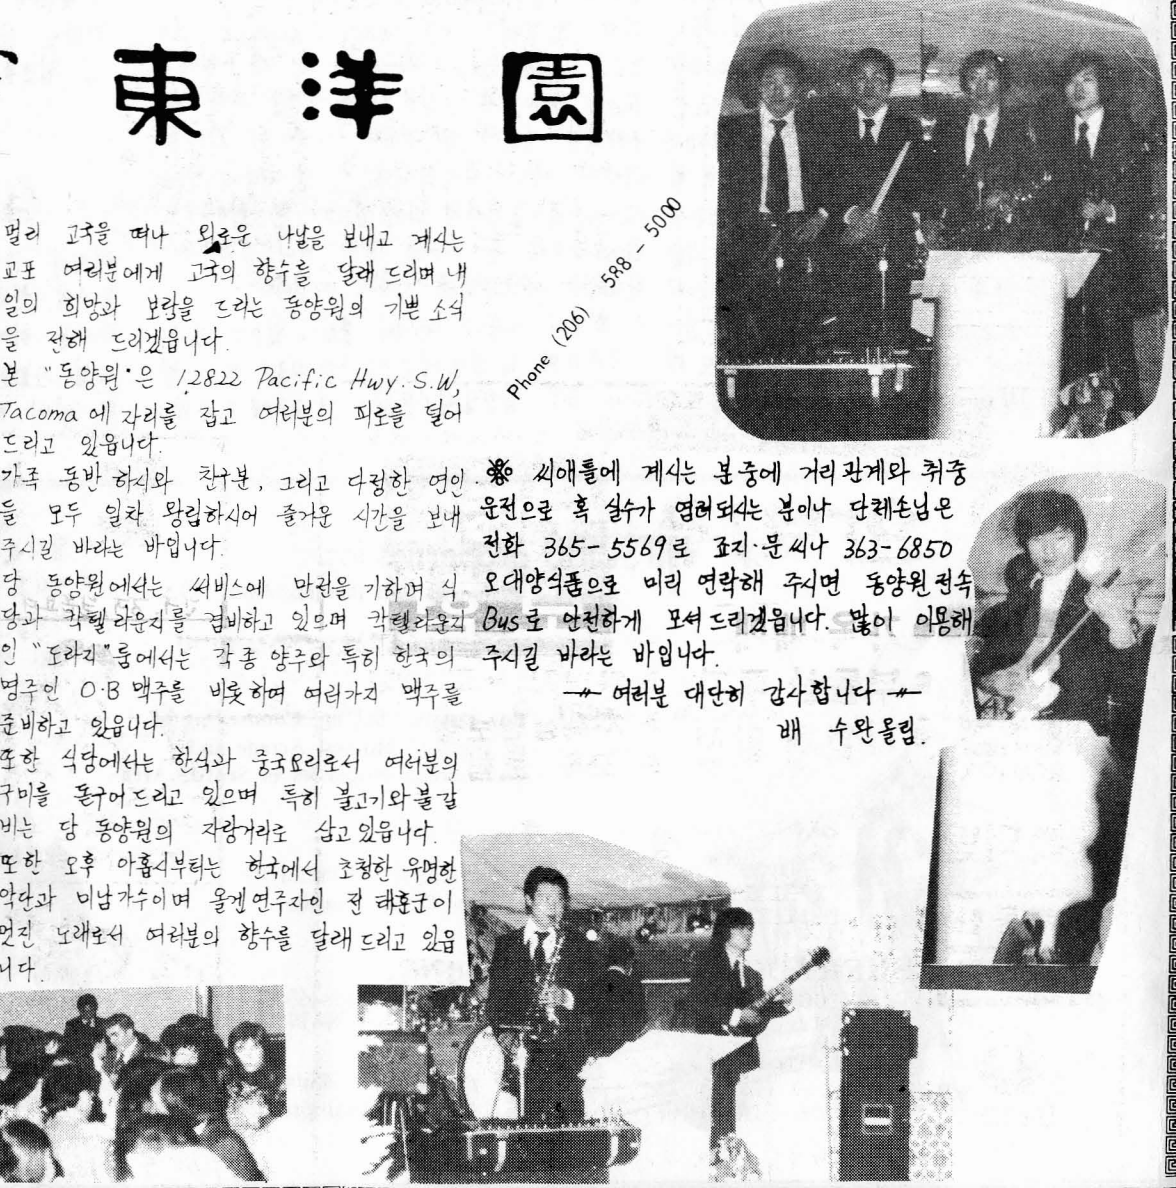 東洋園
멀리 고국을 떠나 외로운 나날을 보내고 계시는
교포 여러분에게 고국의 향수를 달래 드리며 내
일의 희망과 보람을 드리는 동양원의 기쁜 소식
을 전해 드리겠읍니다.
본 "동양원"은 12822 Pacific Hwy. S.W,
Tacoma 에 자리를 잡고 여러분의 피로를 덜어
드리고 있읍니다.
가족 동반 하시와 친구분, 그리고 다정한 연인
들 모두 일차 왕림하시어 즐거운 시간을 보내
주시길 바라는 바입니다.
당 동양원에서는 써비스에 만전을 기하며 식
당과 칵텔 라운지를 겸비하고 있으며 칵텔라운지
인 "도라지"룸에서는 각종 양주와 특히 한국의
명주인 O·B 맥주를 비롯하여 여러가지 맥주를
준비하고 있읍니다.
또한 식당에서는 한식과 중국요리로서 여러분의
구미를 돋구어 드리고 있으며 특히 불고기와 불갈
비는 당 동양원의 자랑거리로 삼고 있읍니다.
또한 오후 아홉시부터는 한국에서 초청한 유명한
악단과 미남가수이며 올겐 연주자인 전 태훈군이
멋진 노래로서 여러분의 향수를 달래 드리고 있읍
니다.
Phone (206) 588-5000
※ 씨애틀에 계시는 분중에 거리관계와 취중
운전으로 혹 실수가 염려되시는 분이나 단체손님은
전화 365-5569로 죠지·문씨나 363-6850
오대양식품으로 미리 연락해 주시면 동양원 전속
Bus로 안전하게 모셔 드리겠읍니다. 많이 이용해
주시길 바라는 바입니다.
여러분 대단히 감사합니다
배 수완올림.